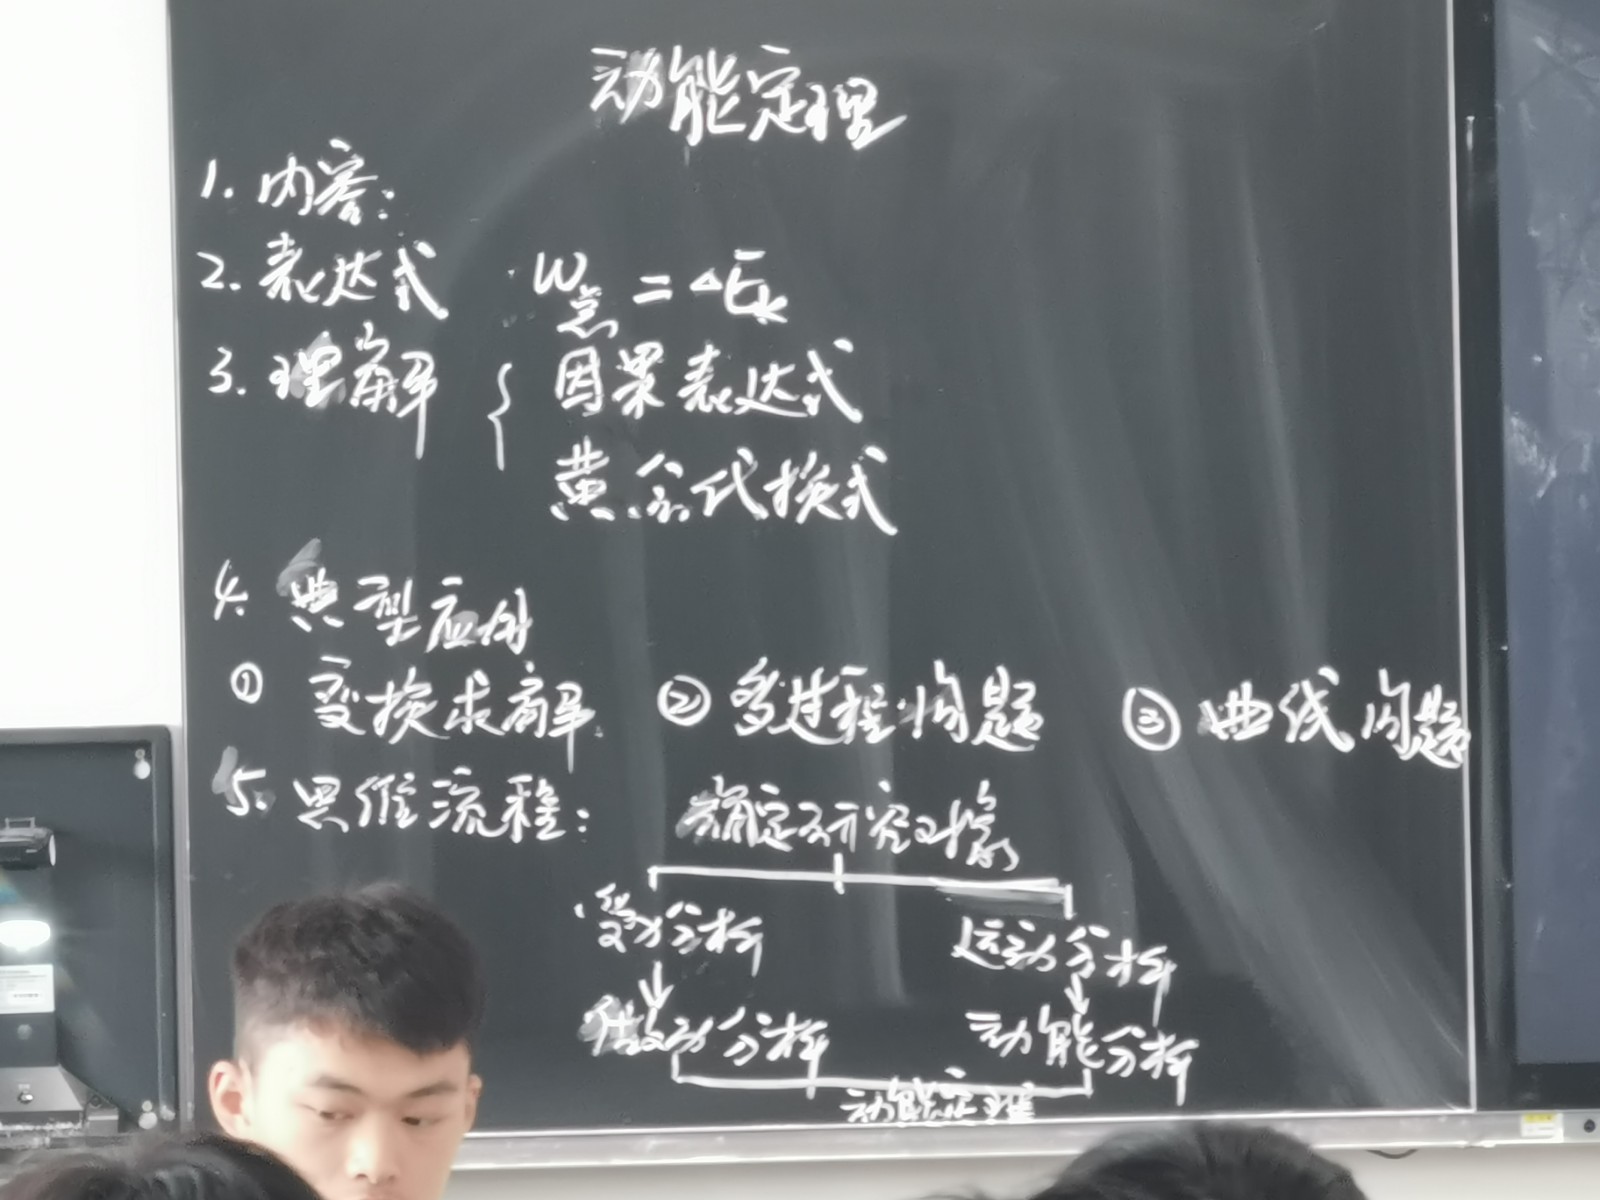 动能定理
1. 内容:
2. 表达式 W总 = △Ek
3. 理解 { 因果表达式
黄金代换式
4. 典型应用
① 变换求解 ② 多过程问题 ③ 曲线问题
5. 思维流程: 确定研究对象
受力分析 运动分析
做功分析 动能分析
动能定理